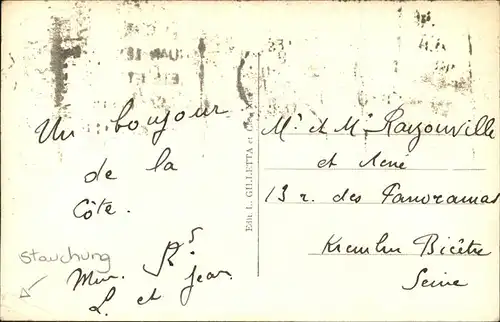 Un bonjour
de la
Côte.
Stauchung
Mm. R^s
L. et Jean.
Edit. L. GILLETTA et
Mr et Me Rayouville
et René
13 r. des Panoramas
Kremlin Bicêtre
Seine